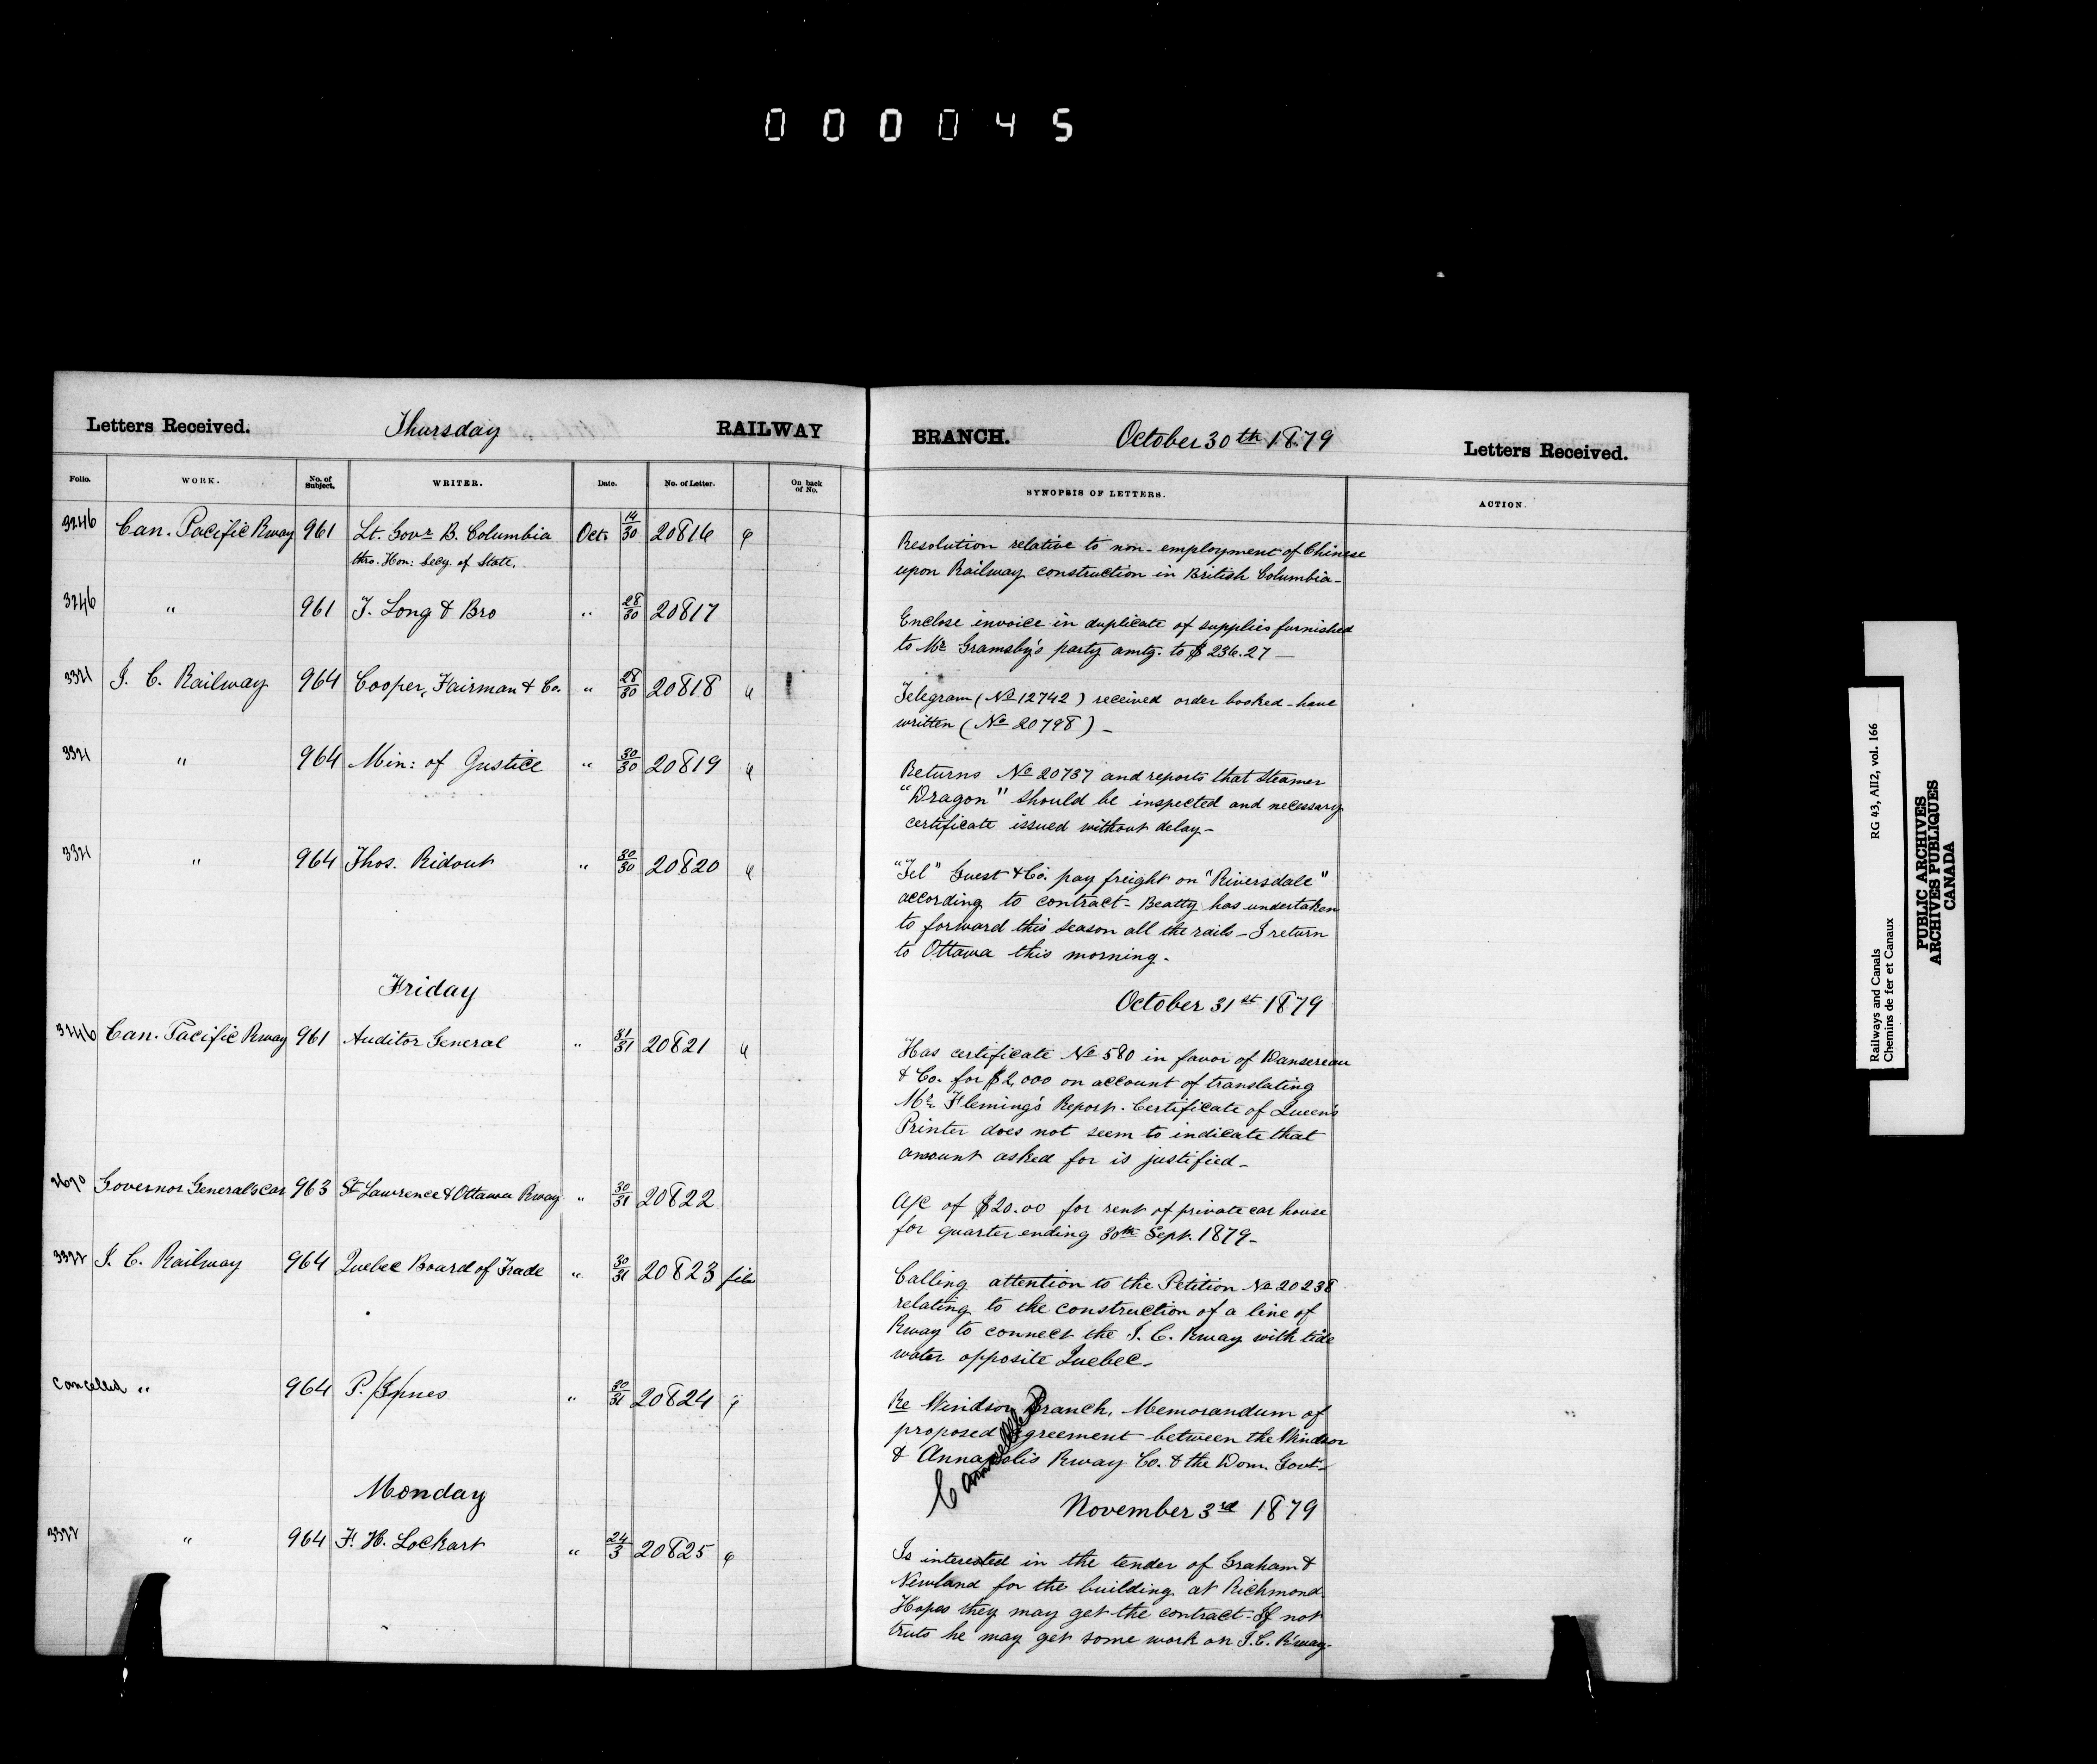 000045
Letters Received. Thursday RAILWAY BRANCH. October 30th 1879 Letters Received.
Folio. WORK. No. of Subject. WRITER. Date. No. of Letter. On back of No. SYNOPSIS OF LETTERS. ACTION.
3246 Can. Pacific Rway 961 Lt. Govr B. Columbia Oct. 14/30 20816
thro. Hon: Secy. of State.
Resolution relative to non-employment of Chinese
upon Railway construction in British Columbia-
3246 " 961 T. Long & Bro " 28/30 20817
Enclose invoice in duplicate of supplies furnished
to Mr Gramsby's party amtg. to $236.27 —
3321 I. C. Railway 964 Cooper, Fairman & Co. " 28/30 20818
Telegram (No 12742) received order booked - have
written (No 20798) -
3321 " 964 Min: of Justice " 30/30 20819
Returns No 20737 and reports that Steamer
"Dragon" should be inspected and necessary
certificate issued without delay-
3321 " 964 Thos. Ridout " 30/30 20820
"Tel" Guest & Co. pay freight on "Riversdale"
according to contract - Beatty has undertaken
to forward this season all the rails - I return
to Ottawa this morning.
Friday October 31st 1879
3246 Can. Pacific Rway 961 Auditor General " 31/31 20821
Has certificate No 580 in favor of Dansereau
& Co. for $2,000 on account of translating
Mr. Fleming's Report. Certificate of Queen's
Printer does not seem to indicate that
amount asked for is justified-
2670 Governor General's Car 963 St Lawrence & Ottawa Rway " 30/31 20822
A/C of $20.00 for rent of private car house
for quarter ending 30th Sept. 1879-
3322 I. C. Railway 964 Quebec Board of Trade " 30/31 20823 file
Calling attention to the Petition No 20238
relating to the construction of a line of
Rway to connect the I. C. Rway with tide
water opposite Quebec-
Cancelled " 964 P. Innes " 30/31 20824
Re Windsor Branch, Memorandum of
proposed agreement between the Windsor
& Annapolis Rway Co. & the Dom. Govt-
Cancelled
Monday November 3rd 1879
3322 " 964 F. H. Lockart " 24/3 20825
Is interested in the tender of Graham &
Newland for the building at Richmond
Hopes they may get the contract - If not
truts he may get some work on I.C. Rway-
Railways and Canals RG 43, AII2, vol. 166
Chemins de fer et Canaux
PUBLIC ARCHIVES
ARCHIVES PUBLIQUES
CANADA